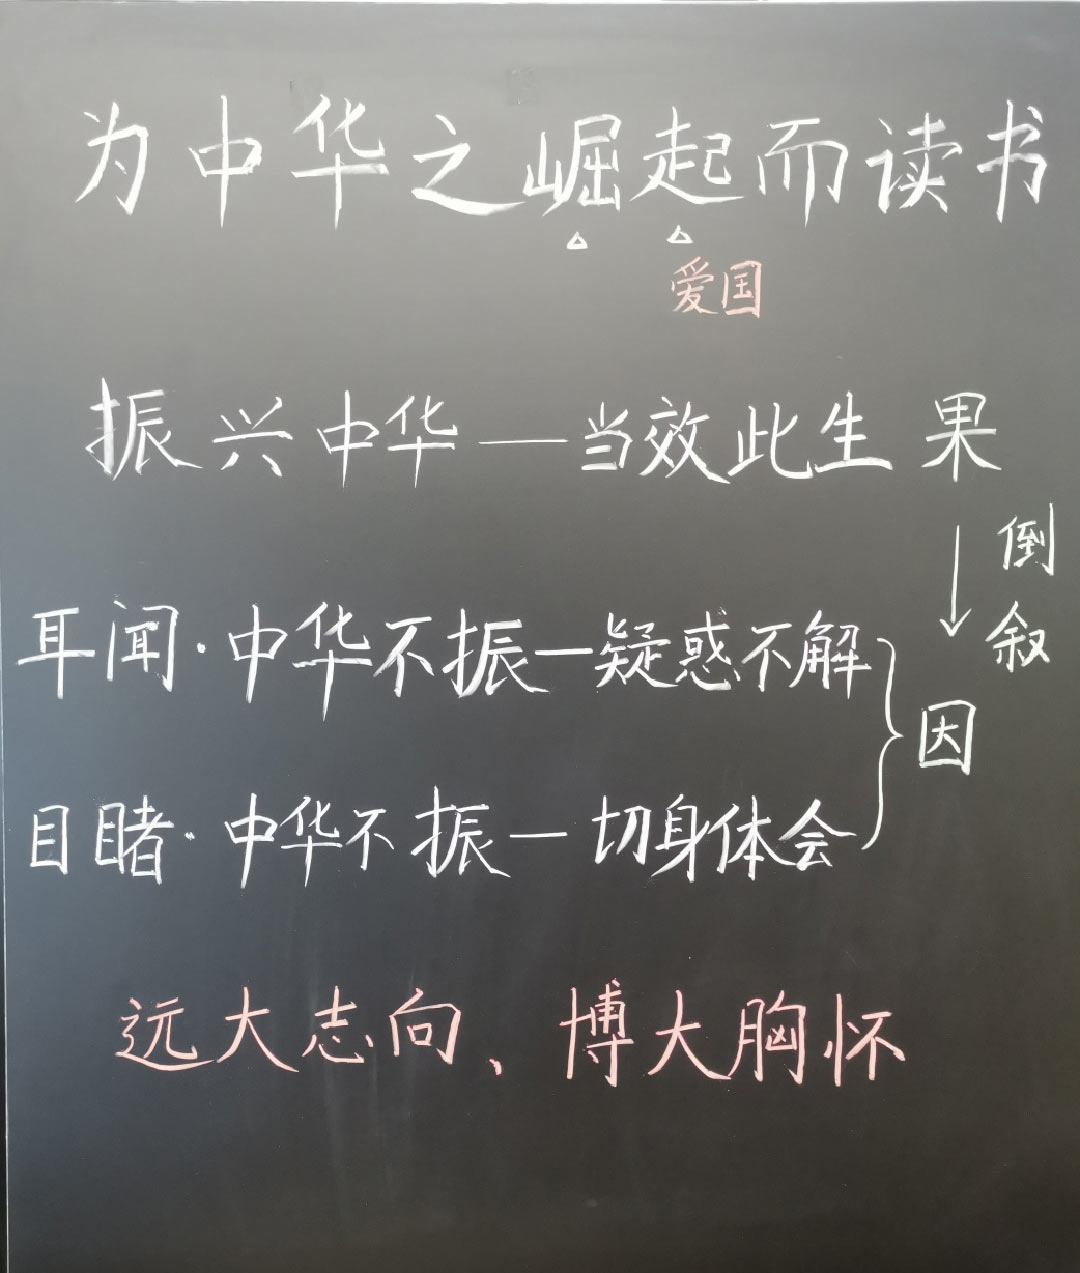 为中华之崛起而读书
爱国
振兴中华—当效此生 果
倒叙
耳闻·中华不振—疑惑不解
因
目睹·中华不振—切身体会
远大志向、博大胸怀